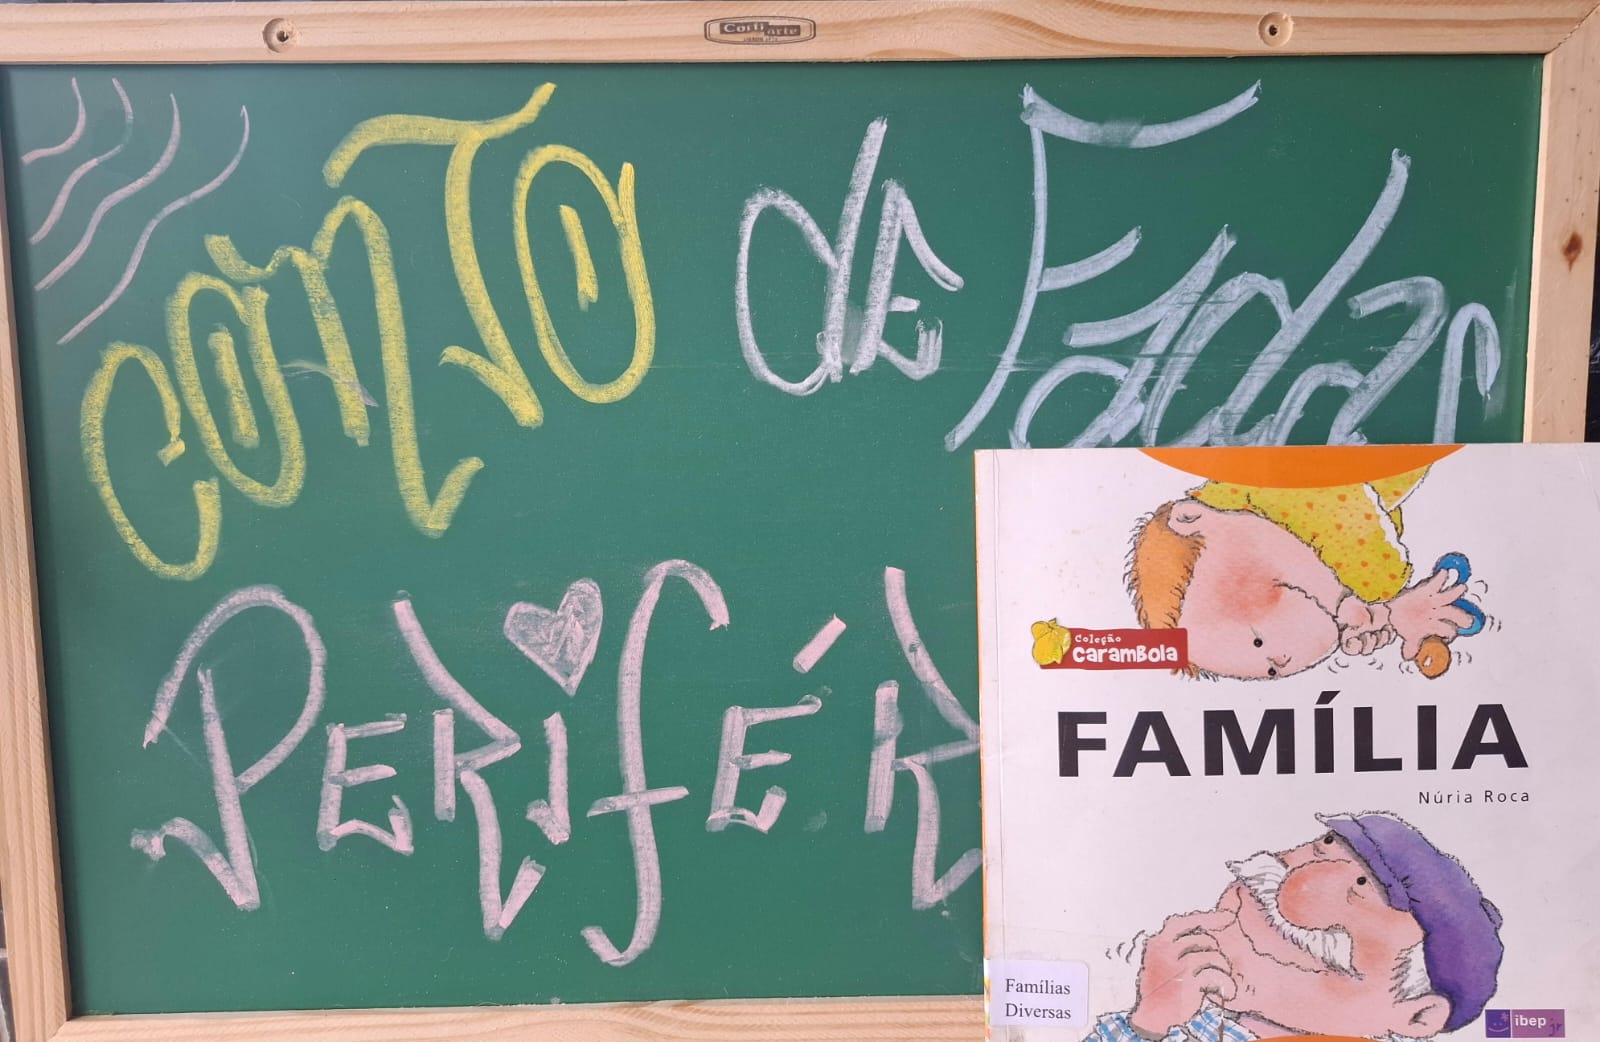 Corti arte
CONTO de Fadas
PERIFÉR
Coleção
Carambola
FAMÍLIA
Núria Roca
Famílias
Diversas
ibep jr